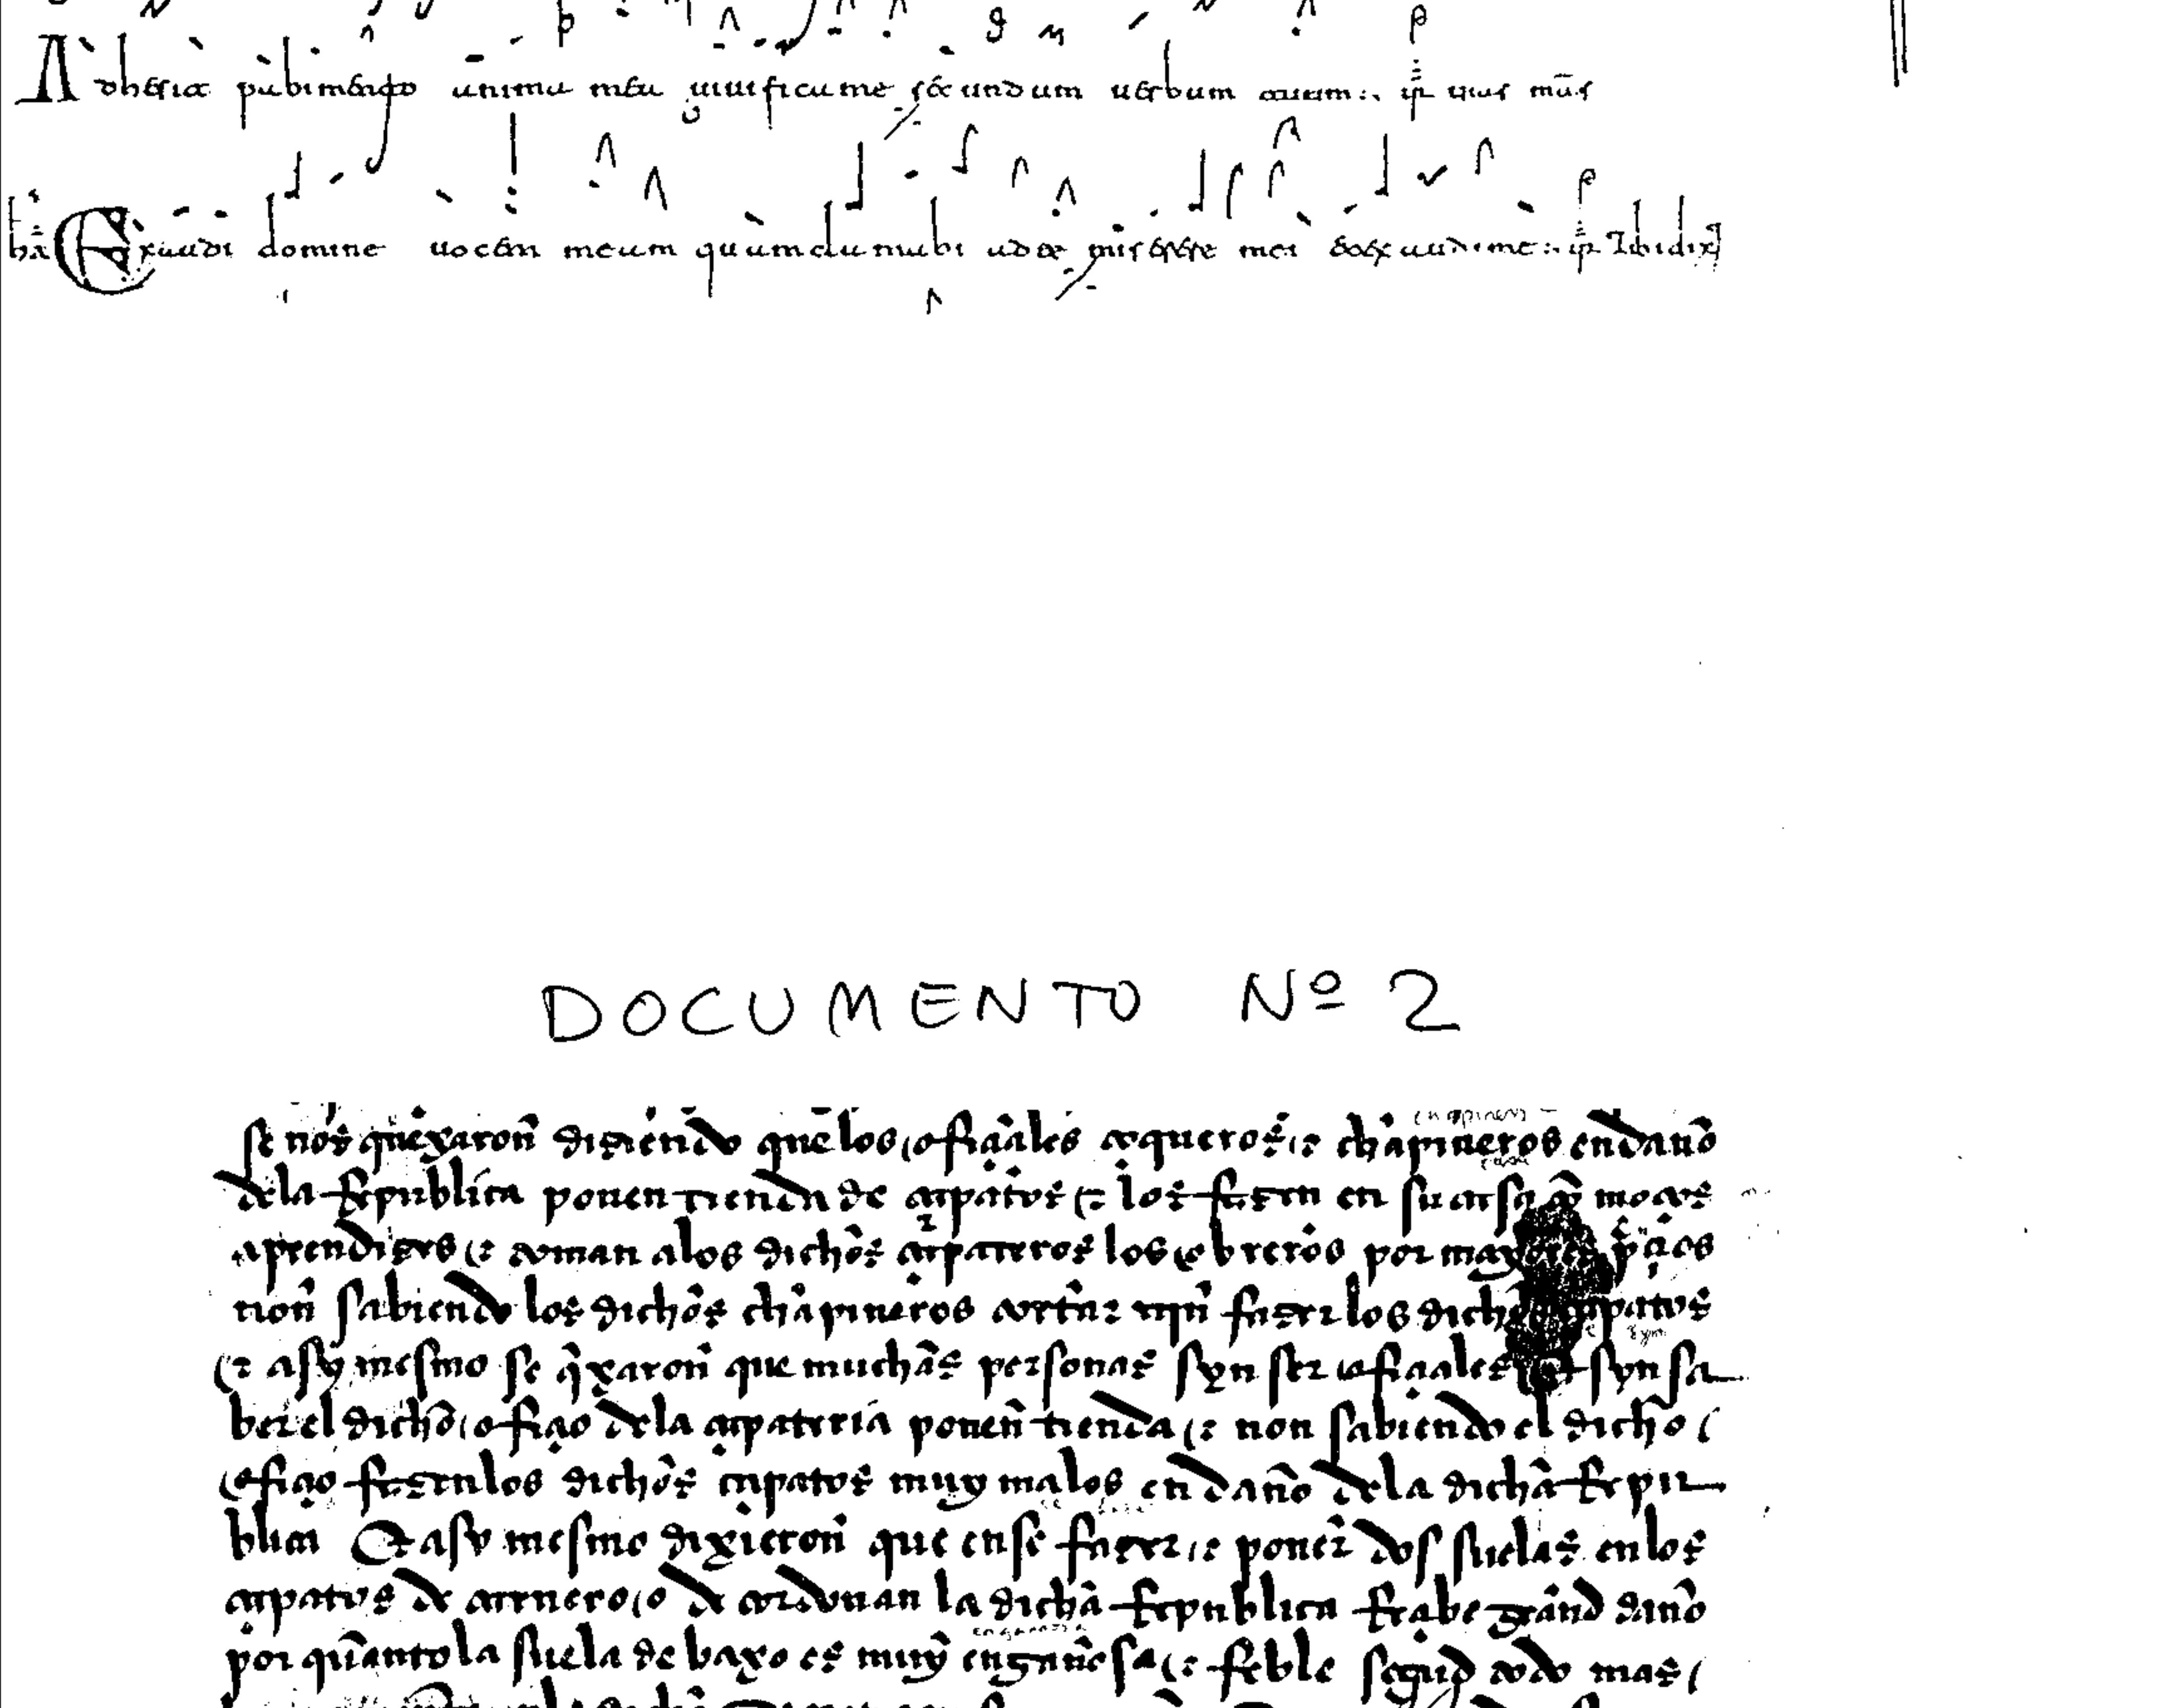 Adhesit pabimento anima mea uiuifica me secundum uerbum tuum
Exaudi domine uocem meam qua clamabi ad te miserere mei et exaudi me
DOCUMENTO Nº 2
se nos quexaron diziendo que los ofiçiales çoqueros e chapineros en daño
dela Republica ponen tienda de çapatos e los fazen en su casa moços
aprendizes e toman alos dichos çapateros los obreros por mayores preçios
non sabiendo los dichos chapineros cortar nin fazer los dichos çapatos
e asy mesmo se qxaron que muchas personas syn ser ofiçiales syn sa
ber el dicho ofiçio dela çapateria ponen tienda e non sabiendo el dicho
ofiçio fazen los dichos çapatos muy malos en daño dela dicha Repu
blica E asy mesmo dixieron que en se fazer e poner dos suelas en los
çapatos de carnero o de cordouan la dicha Republica Resçabe grand daño
por quanto la suela de baxo es muy engañosa e feble segund todo mas